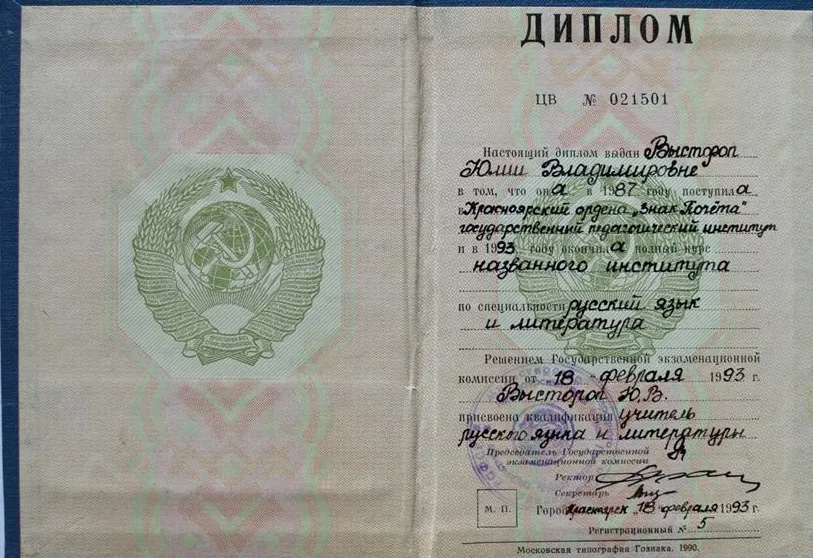 ДИПЛОМ
ЦВ № 021501
Настоящий диплом выдан Высторoп
Юлии Владимировне
в том, что она в 1987 году поступила
в Красноярский ордена „Знак Почёта"
государственный педагогический институт
и в 1993 году окончила полный курс
названного института
по специальности русский язык
и литература
Решением Государственной экзаменационной
комиссии от 18 февраля 1993 г.
Высторoп Ю.В.
присвоена квалификация учитель
русского языка и литературы
Председатель Государственной
экзаменационной комиссии
Ректор
Секретарь
М. П.
Город Красноярск „18" февраля 1993 г.
Регистрационный № 5
Московская типография Гознака. 1990.